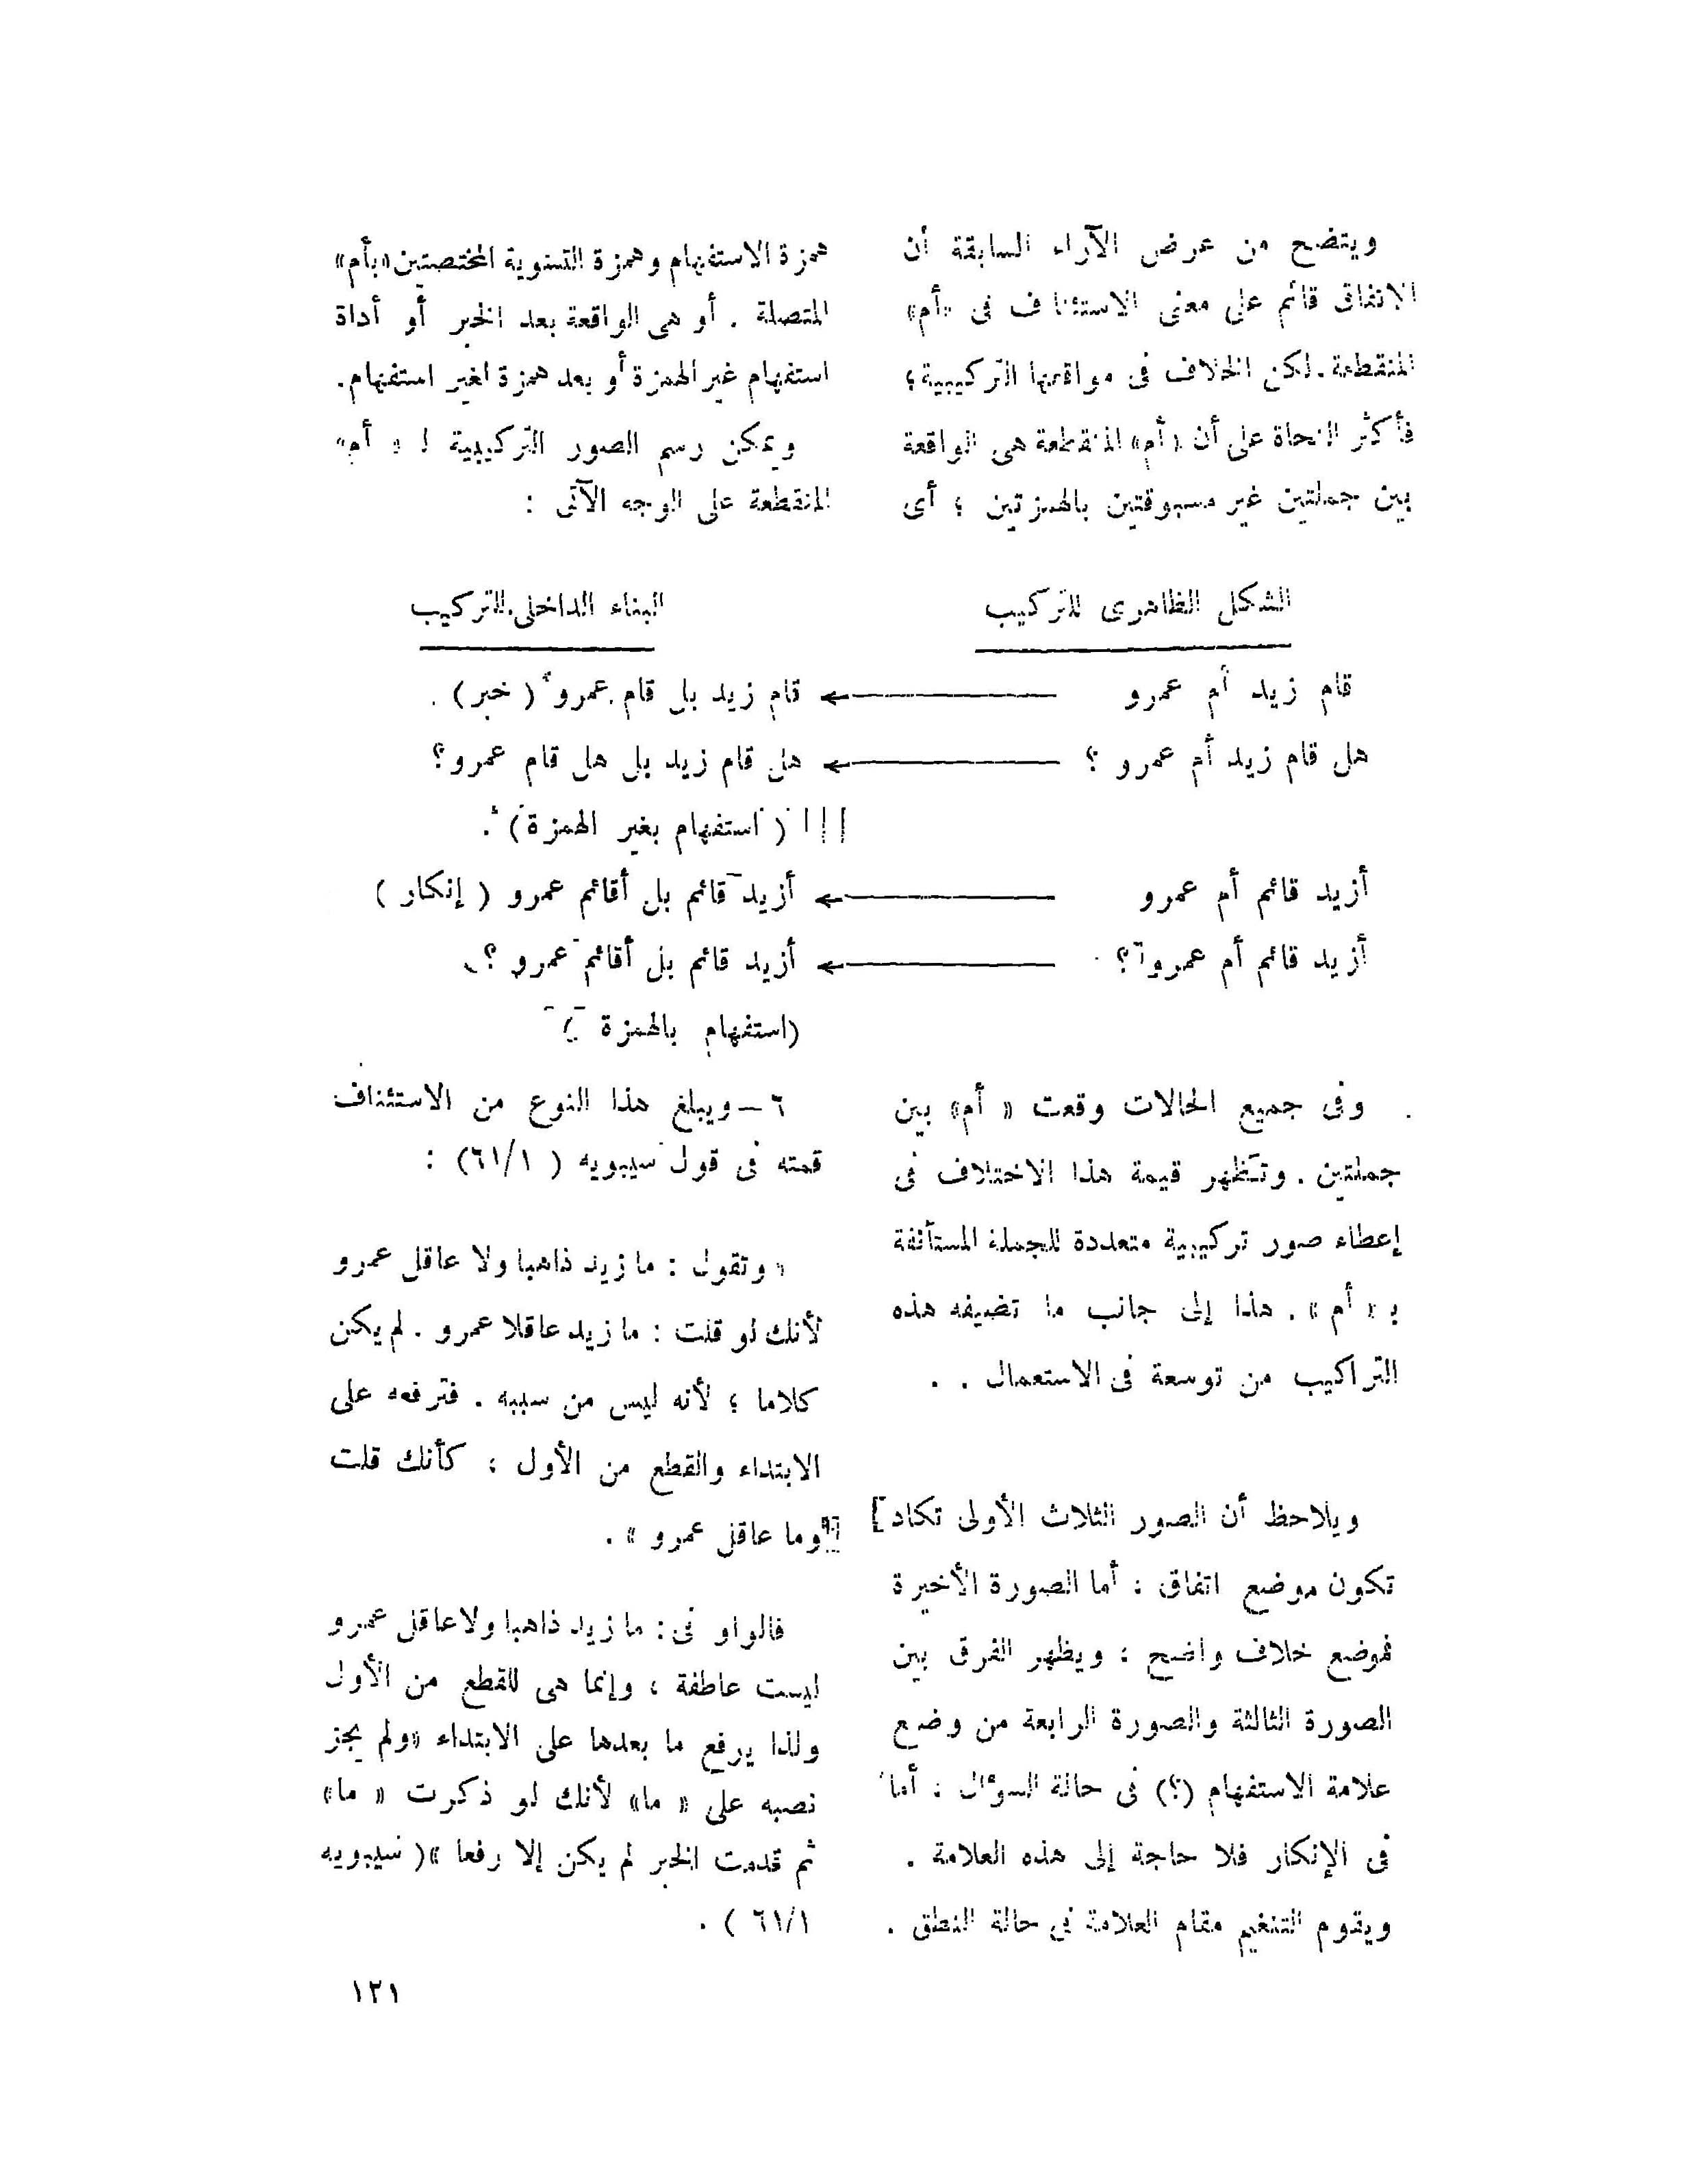 ويتضح من عرض الآراء السابقة أن
الاتفاق قائم على معنى الاستئناف فى «أم»
المنقطعة. لكن الخلاف فى مواقعها التركيبية؛
فأكثر النحاة على أن «أم» المنقطعة هى الواقعة
بين جملتين غير مسبوقتين بالهمزتين ؛ أى
همزة الاستفهام وهمزة التسوية المختصتين «بأم»
المتصلة . أو هى الواقعة بعد الخبر أو أداة
استفهام غير الهمزة أو بعد همزة لغير استفهام.
ويمكن رسم الصور التركيبية لـ « أم»
المنقطعة على الوجه الآتى :
الشكل الظاهرى للتركيب
البناء الداخلى للتركيب
قام زيد أم عمرو ← قام زيد بل قام عمرو ( خبر ) .
هل قام زيد أم عمرو ؟ ← هل قام زيد بل هل قام عمرو؟
( استفهام بغير الهمزة ) .
أزيد قائم أم عمرو ← أزيد قائم بل أقائم عمرو ( إنكار )
أزيد قائم أم عمرو ؟ ← أزيد قائم بل أقائم عمرو ؟
(استفهام بالهمزة )
وفى جميع الحالات وقعت « أم» بين
جملتين . وتظهر قيمة هذا الاختلاف فى
إعطاء صور تركيبية متعددة للجملة المستأنفة
بـ « أم » . هذا إلى جانب ما تضيفه هذه
التراكيب من توسعة فى الاستعمال . .
ويلاحظ أن الصور الثلاث الأولى تكاد
تكون موضع اتفاق ؛ أما الصورة الأخيرة
فموضع خلاف واضح ؛ ويظهر الفرق بين
الصورة الثالثة والصورة الرابعة من وضع
علامة الاستفهام (؟) فى حالة السؤال ؛ أما
فى الإنكار فلا حاجة إلى هذه العلامة .
ويقوم التنغيم مقام العلامة فى حالة النطق .
٦ – ويبلغ هذا النوع من الاستئناف
قمته فى قول سيبويه ( ٦١/١) :
« وتقول : ما زيد ذاهبا ولا عاقل عمرو
لأنك لو قلت : ما زيد عاقلا عمرو . لم يكن
كلاما ؛ لأنه ليس من سببه . فترفعه على
الابتداء والقطع من الأول ؛ كأنك قلت
وما عاقل عمرو » .
فالواو فى : ما زيد ذاهبا ولا عاقل عمرو
ليست عاطفة ، وإنما هى للقطع من الأول
ولذا يرفع ما بعدها على الابتداء «ولم يجز
نصبه على « ما» لأنك لو ذكرت « ما»
ثم قدمت الخبر لم يكن إلا رفعا »( سيبويه
٦١/١ ) .
١٢١